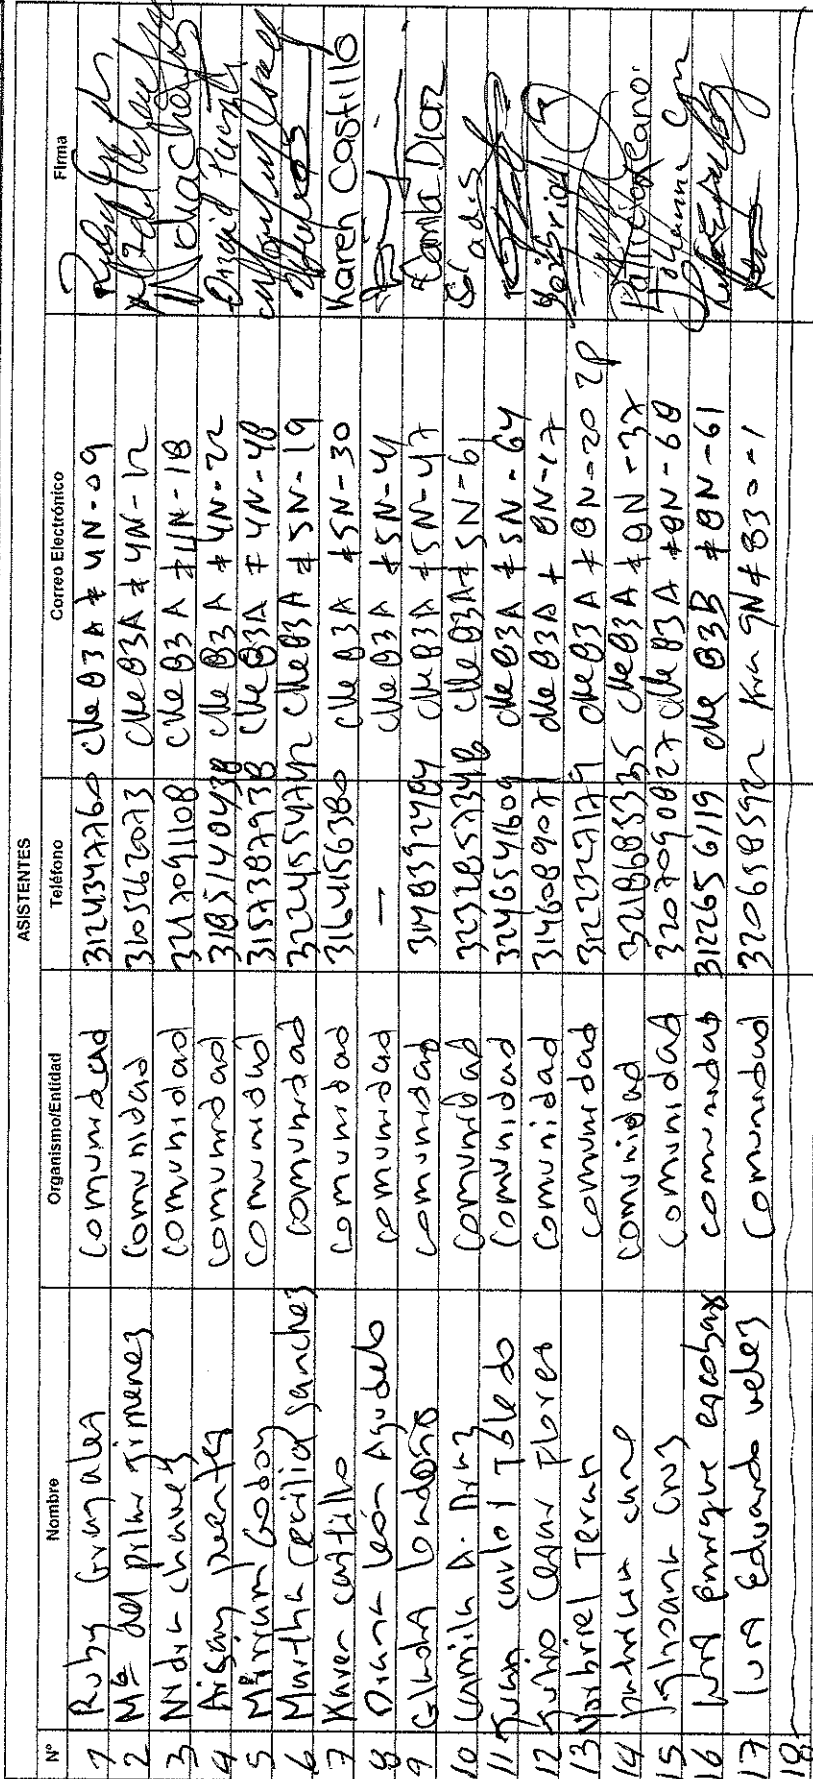 ASISTENTES
Nº Nombre Organismo/Entidad Teléfono Correo Electrónico Firma
1 Ruby Grijales Comunidad 3124347760 Clle 83A # 4N-09
2 Mª del pilar Jimenez Comunidad 3105262073 Clle 83A # 4N-12
3 Nidia chavez comunidad 3217091108 Clle 83A # 4N-18 Nidia Chavez
4 puentes comunidad 3185140438 Clle 83A # 4N-22
5 Miriam Godoy Comunidad 3157387938 Clle 83A # 4N-48
6 Martha Cecilia Sanchez comunidad Clle 83A # 5N-19
7 Karen castillo comunidad 3164156380 Clle 83A #5N-30 Karen Castillo
8 Diana León Agudelo comunidad — Clle 83A #5N-41
9 Gladys Londoño comunidad 3148392484 Clle 83A #5N-47 Camila Diaz
10 Camila A. Diaz Comunidad 3232857348 Clle 83A # 5N-61 Gladis
11 Juan carlos Toledo Comunidad 3246541609 Clle 83A # 5N-64
12 Julio Cesar Flores Comunidad 3146089071 Clle 83A # 8N-17
13 Yorbriel Teran comunidad 3122327179 Clle 83A # 8N-20 2P Yorbriel
14 patricia cano comunidad 3218685335 Clle 83A # 8N-37 Patricia Cano
15 Johana Cruz Comunidad 3207090827 Clle 83A #8N-68 Johanna Cruz
16 Luis Enrique escobar comunidad 3122656119 Clle 83B #8N-61
17 Luis Eduardo velez Comunidad 3206585922 Kra 9N # 830-1
18